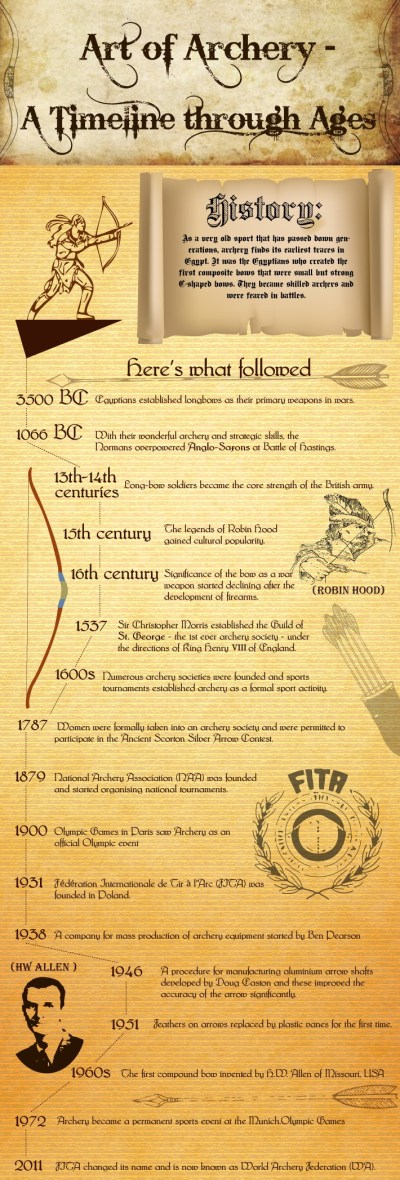 Art of Archery -
A Timeline through Ages
History:
As a very old sport that has passed down gen-
erations, archery finds its earliest traces in
Egypt. It was the Egyptians who created the
first composite bows that were small but strong
C-shaped bows. They became skilled archers and
were feared in battles.
Here's what followed
3500 BC Egyptians established longbows as their primary weapons in wars.
1066 BC With their wonderful archery and strategic skills, the
Normans overpowered Anglo-Saxons at Battle of Hastings.
13th-14th
centuries Long-bow soldiers became the core strength of the British army.
15th century The legends of Robin Hood
gained cultural popularity.
16th century Significance of the bow as a war
weapon started declining after the
development of firearms.
(ROBIN HOOD)
1537 Sir Christopher Morris established the Guild of
St. George - the 1st ever archery society - under
the directions of King Henry VIII of England.
1600s Numerous archery societies were founded and sports
tournaments established archery as a formal sport activity.
1787 Women were formally taken into an archery society and were permitted to
participate in the Ancient Scorton Silver Arrow Contest.
1879 National Archery Association (NAA) was founded
and started organising national tournaments.
FITA
1900 Olympic Games in Paris saw Archery as an
official Olympic event
1931 Fédération Internationale de Tir à l'Arc (FITA) was
founded in Poland.
1938 A company for mass production of archery equipment started by Ben Pearson
(HW ALLEN )
1946 A procedure for manufacturing aluminium arrow shafts
developed by Doug Easton and these improved the
accuracy of the arrow significantly.
1951 Feathers on arrows replaced by plastic vanes for the first time.
1960s The first compound bow invented by H.W. Allen of Missouri, USA
1972 Archery became a permanent sports event at the Munich,Olympic Games
2011 FITA changed its name and is now known as World Archery Federation (WA).